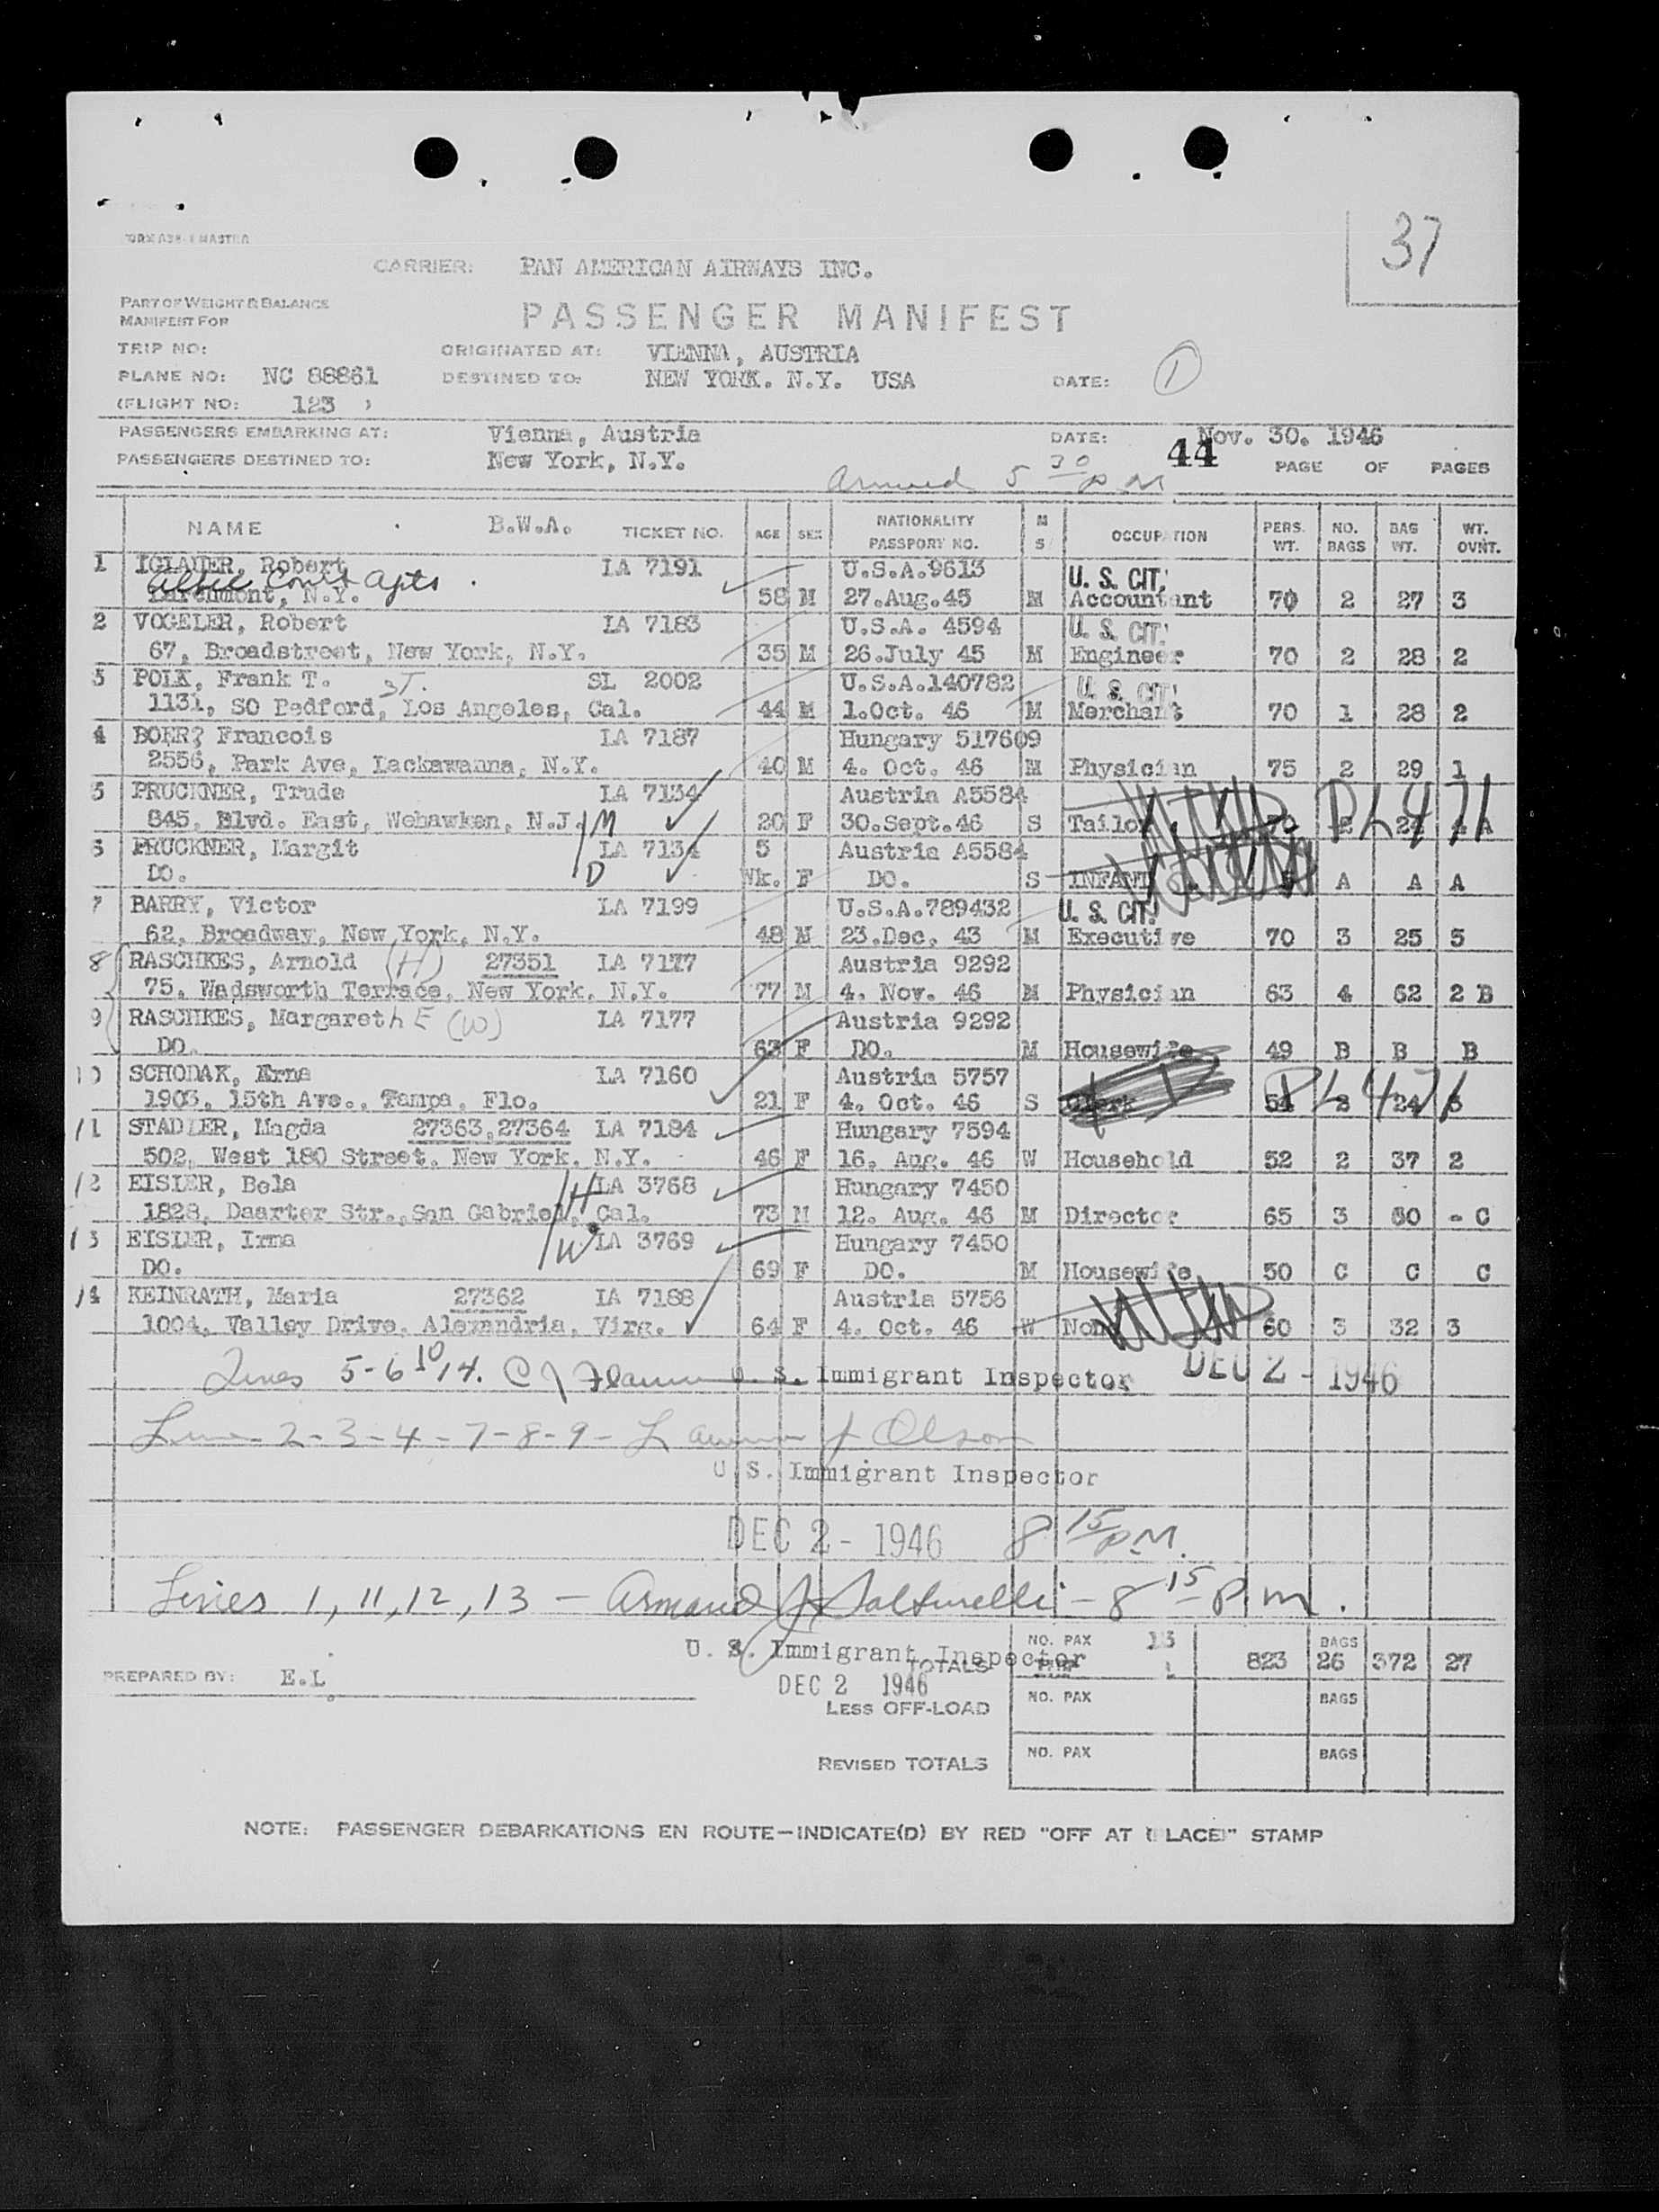 37
CARRIER: PAN AMERICAN AIRWAYS INC.
PART OF WEIGHT & BALANCE
MANIFEST FOR
PASSENGER MANIFEST
TRIP NO: ORIGINATED AT: VIENNA, AUSTRIA
PLANE NO: NC 88861 DESTINED TO: NEW YORK. N.Y. USA DATE: 1
(FLIGHT NO: 123 )
PASSENGERS EMBARKING AT: Vienna, Austria DATE: Nov. 30. 1946
PASSENGERS DESTINED TO: New York, N.Y. 44 PAGE OF PAGES
Arrived 5 30 PM
NAME B.W.A. TICKET NO. AGE SEX NATIONALITY PASSPORT NO. M S OCCUPATION PERS. WT. NO. BAGS BAG WT. WT. OVNT.
1 IGLAUER, Robert LA 7191 U.S.A. 9613 U. S. CIT.
Court Apts
Larchmont, N.Y. 58 M 27.Aug.45 M Accountant 70 2 27 3
2 VOGELER, Robert LA 7183 U.S.A. 4594 U. S. CIT.
67, Broadstreet, New York, N.Y. 35 M 26.July 45 M Engineer 70 2 28 2
3 POLK, Frank T. ST. SL 2002 U.S.A.140782 U. S. CIT.
1131, SO Bedford, Los Angeles, Cal. 44 M 1.Oct. 46 M Merchant 70 1 28 2
4 Francois LA 7187 Hungary 517609
2556, Park Ave, Lackawanna, N.Y. 40 M 4. Oct. 46 M Physician 75 2 29 1
5 PRUCKNER, Trude LA 7134 Austria A5584
845, Blvd. East, Wehawken, N.J. M 20 F 30.Sept.46 S Tailor PL 471
6 PRUCKNER, Margit LA 7134 5 Austria A5584
DO. D Wk. F DO. S INFANT A A A
7 BARRY, Victor LA 7199 U.S.A.789432 U. S. CIT.
62, Broadway, New York, N.Y. 48 M 23.Dec. 43 M Executive 70 3 25 5
8 RASCHKES, Arnold (H) 27351 LA 7177 Austria 9292
75, Wadsworth Terrace, New York, N.Y. 77 M 4. Nov. 46 M Physician 63 4 62 2 B
9 RASCHKES, Margareth E (W) LA 7177 Austria 9292
DO. 63 F DO. M Housewife 49 B B B
10 SCHODAK, Erna LA 7160 Austria 5757
1903, 15th Ave., Tampa, Flo. 21 F 4. Oct. 46 S Clerk PL 471
11 STADLER, Magda 27363,27364 LA 7184 Hungary 7594
502, West 180 Street, New York, N.Y. 46 F 16. Aug. 46 W Household 52 2 37 2
12 EISLER, Bela H LA 3768 Hungary 7450
1828, Daarter Str., San Gabriel, Cal. 73 M 12. Aug. 46 M Director 65 3 60 - C
13 EISLER, Irma W LA 3769 Hungary 7450
DO. 69 F DO. M Housewife 50 C C C
14 KEINRATH, Maria 27362 LA 7188 Austria 5756
1004, Valley Drive, Alexandria, Virg. 64 F 4. Oct. 46 W 60 3 32 3
Lines 5-6 10 14. U. S. Immigrant Inspector DEC 2 - 1946
Line 2-3-4-7-8-9- Olson
U. S. Immigrant Inspector
DEC 2 - 1946 8 15 PM.
Lines 1, 11, 12, 13 - Armand J. - 8 15 P.m.
U. S. Immigrant Inspector
PREPARED BY: E.L. TOTALS NO. PAX 13 1 823 BAGS 26 372 27
DEC 2 1946
LESS OFF-LOAD NO. PAX BAGS
REVISED TOTALS NO. PAX BAGS
NOTE: PASSENGER DEBARKATIONS EN ROUTE—INDICATE(D) BY RED "OFF AT (PLACE)" STAMP